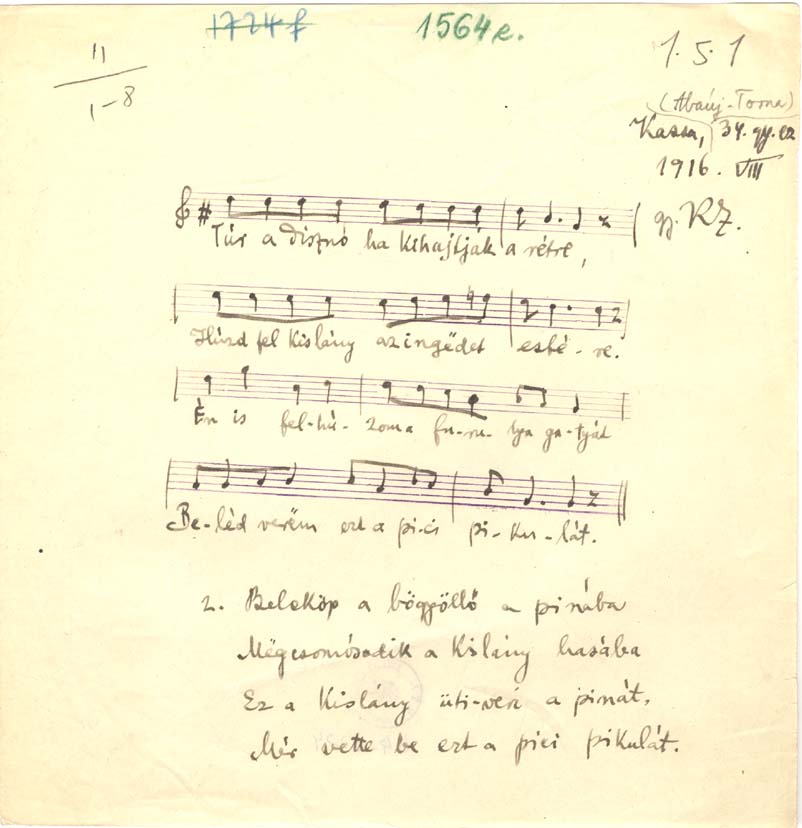 1724f 1564e.
11
1-8
1.5.1
(Abaúj-Torna)
Kassa, 34. gy. ez
1916. VIII
gy. KZ.
Túr a disznó ha kihajtják a rétre,
Húzd fel kislány az ingëdet esté-re.
Én is fel-hú-zom a fu-ru-lya ga-tyát
Be-léd verëm ezt a pi-ci pi-ku-lát.
2. Beleköp a bögyöllő a pinába
Mëgcsomósodik a kislány hasába
Ez a kislány üti-veri a pinát,
Mér vette be ezt a pici pikulát.